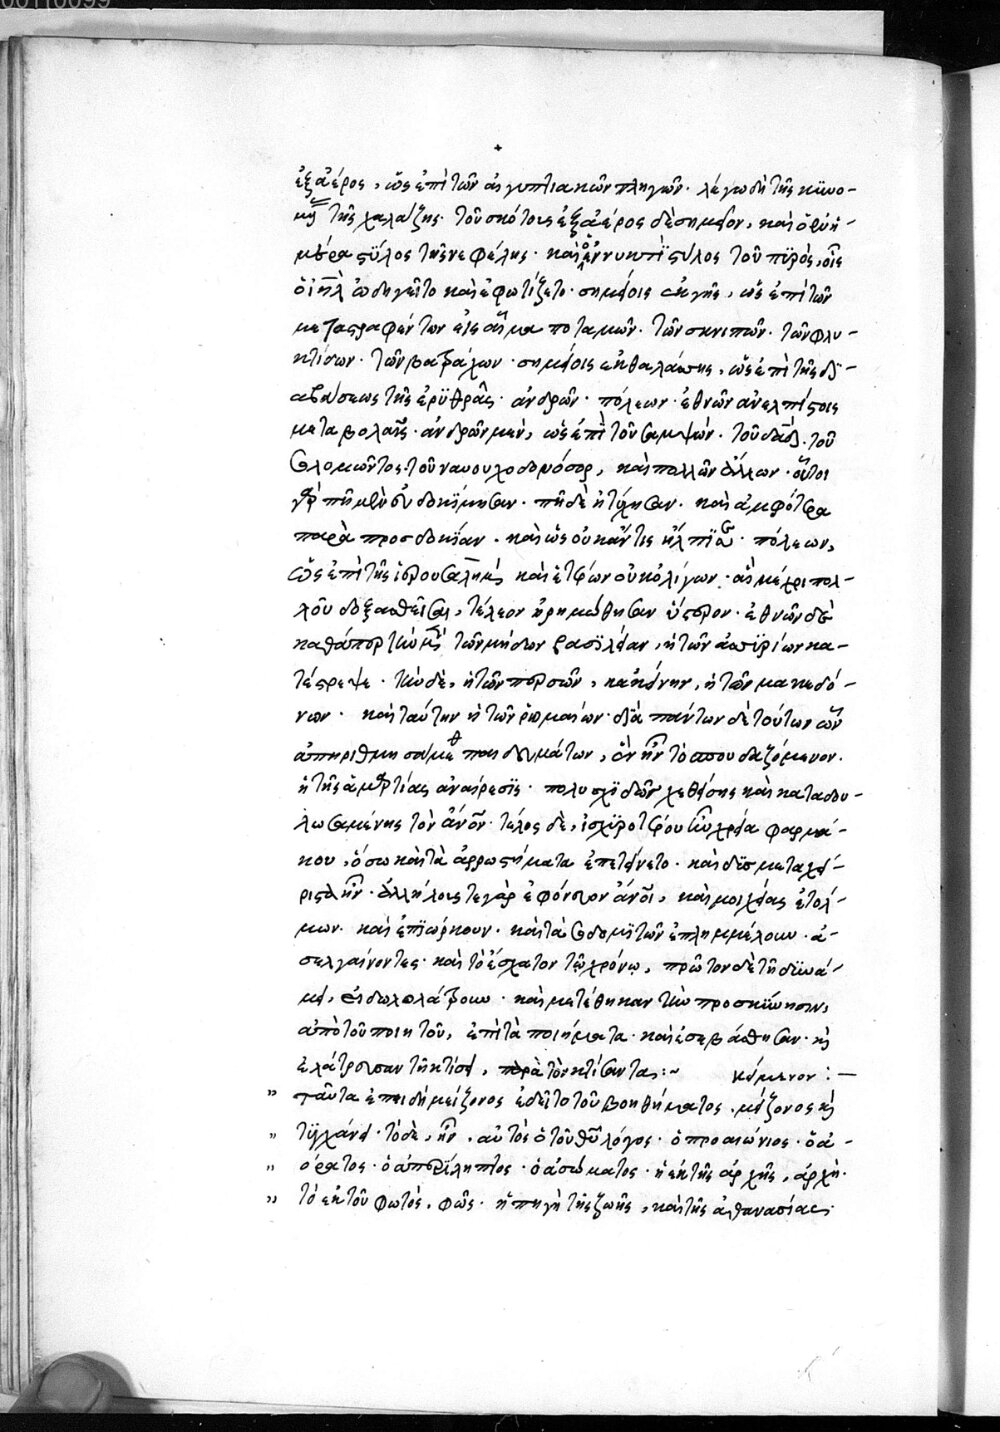 ἐξ ἀέρος, ὡς ἐπὶ τῶν αἰγυπτιακῶν πληγῶν· λέγω δὴ τῆς κϋνο-
τῆς χαλάζης· τοῦ σκότους ἐξ ἀέρος δὲ σημεῖον, καὶ ὁ ἐν ἡ-
μέρα στῦλος τῆς νεφέλης· καὶ ὁ ἐν νυκτὶ στύλος τοῦ πϋρὸς, οἷς
ὁ ἰηλ ὡδηγεῖτο καὶ ἐφωτίζετο· σημείοις ἐκ γῆς, ὡς ἐπὶ τῶν
μεταστραφέντων εἰς αἷμα ποταμῶν· τῶν σκνιπῶν· τῶν φλυ-
κτίδων· τῶν βατράχων· σημείοις ἐκ θαλάσσης, ὡς ἐπὶ τῆς δι-
αβάσεως τῆς ἐρϋθρᾶς· ἀνδρῶν· πόλεων· ἐθνῶν ἀνελπίστοις
μεταβολαῖς· ἀνδρῶν μὲν, ὡς ἐπὶ τοῦ σαμψών· τοῦ δαδ· τοῦ
σολομῶντος· τοῦ ναουχοδονόσορ, καὶ πολλῶν ἄλλων· οὗτοι
γὰρ πῆ μὲν εὐδοκίμησαν· πῆ δὲ ἠτύχησαν· καὶ ἀμφότερα
παρὰ προσδοκίαν· καὶ ὡς οὐκ ἄν τις ἤλπϊσε· πόλεων,
ὡς ἐπὶ τῆς ἱερουσαλημ καὶ ἑτέρων οὐκ ὀλίγων· αἳ μέχρι πολ-
λοῦ δοξασθεῖσαι, τέλεον ἠρημώθησαν ὕστερον· ἐθνῶν δὲ
καθάπερ τὴν τῶν μήδων βασιλείαν, ἡ τῶν ἀσσϋρίων κα-
τέστρεψε· τὴν δὲ, ἡ τῶν περσῶν, κἀκείνην, ἡ τῶν μακεδό-
νων· καὶ ταύτην ἡ τῶν ῥωμαίων· διὰ πάντων δὲ τούτων ὧν
ἀπηριθμησάμεθ παιδευμάτων, ἓν ἦν τὸ σπουδαζόμενον·
ἡ τῆς ἁμαρτίας ἀναίρεσϊς· πολυσχϊδῶς χεθείσης καὶ καταδου-
λωσαμένης τὸν ἄνον· τέλος δὲ, ἰσχϋροτέρου ἦν χρεία φαρμά-
κου, ὅσω καὶ τὰ ἀρρωστήματα ἐπετείνετο· καὶ δϊσμεταχεί-
ριστα ἦν· ἀλλήλους τε γὰρ ἐφόνευον ἄνοι, καὶ μοιχείας ἐτόλ-
μων· καὶ ἐπϊώρκουν· καὶ τὰ σοδομϊτῶν ἐπλημμέλουν· ἀ-
σελγαίνοντες· καὶ τὸ ἔσχατον τῷ χρόνω, πρῶτον δὲ τῆ δϋνά-
μει, εἰδωλολάτρουν· καὶ μετέθηκαν τὴν προσκϋνησιν,
ἀπὸ τοῦ ποιητοῦ, ἐπὶ τὰ ποιήματα· καὶ ἐσεβάσθησαν· καὶ
ἐλάτρευσαν τῆ κτίσει, παρὰ τὸν κτίσαντα:~ κείμενον:—
„ ταῦτα ἐπειδὴ μείζονος ἐδεῖτο τοῦ βοηθήματος, μείζονος καὶ
„ τϋγχάνει· τὸ δὲ, ἦν, αὐτὸς ὁ τοῦ θυ λόγος· ὁ προαιώνιος· ὁ ἀ-
„ όρατος· ὁ ἀπερίληπτος· ὁ ἀσώματος· ἡ ἐκ τῆς ἀρχῆς, ἀρχή·
„ τὸ ἐκ τοῦ φωτὸς, φῶς· ἡ πηγὴ τῆς ζωῆς, καὶ τῆς ἀθανασίας·